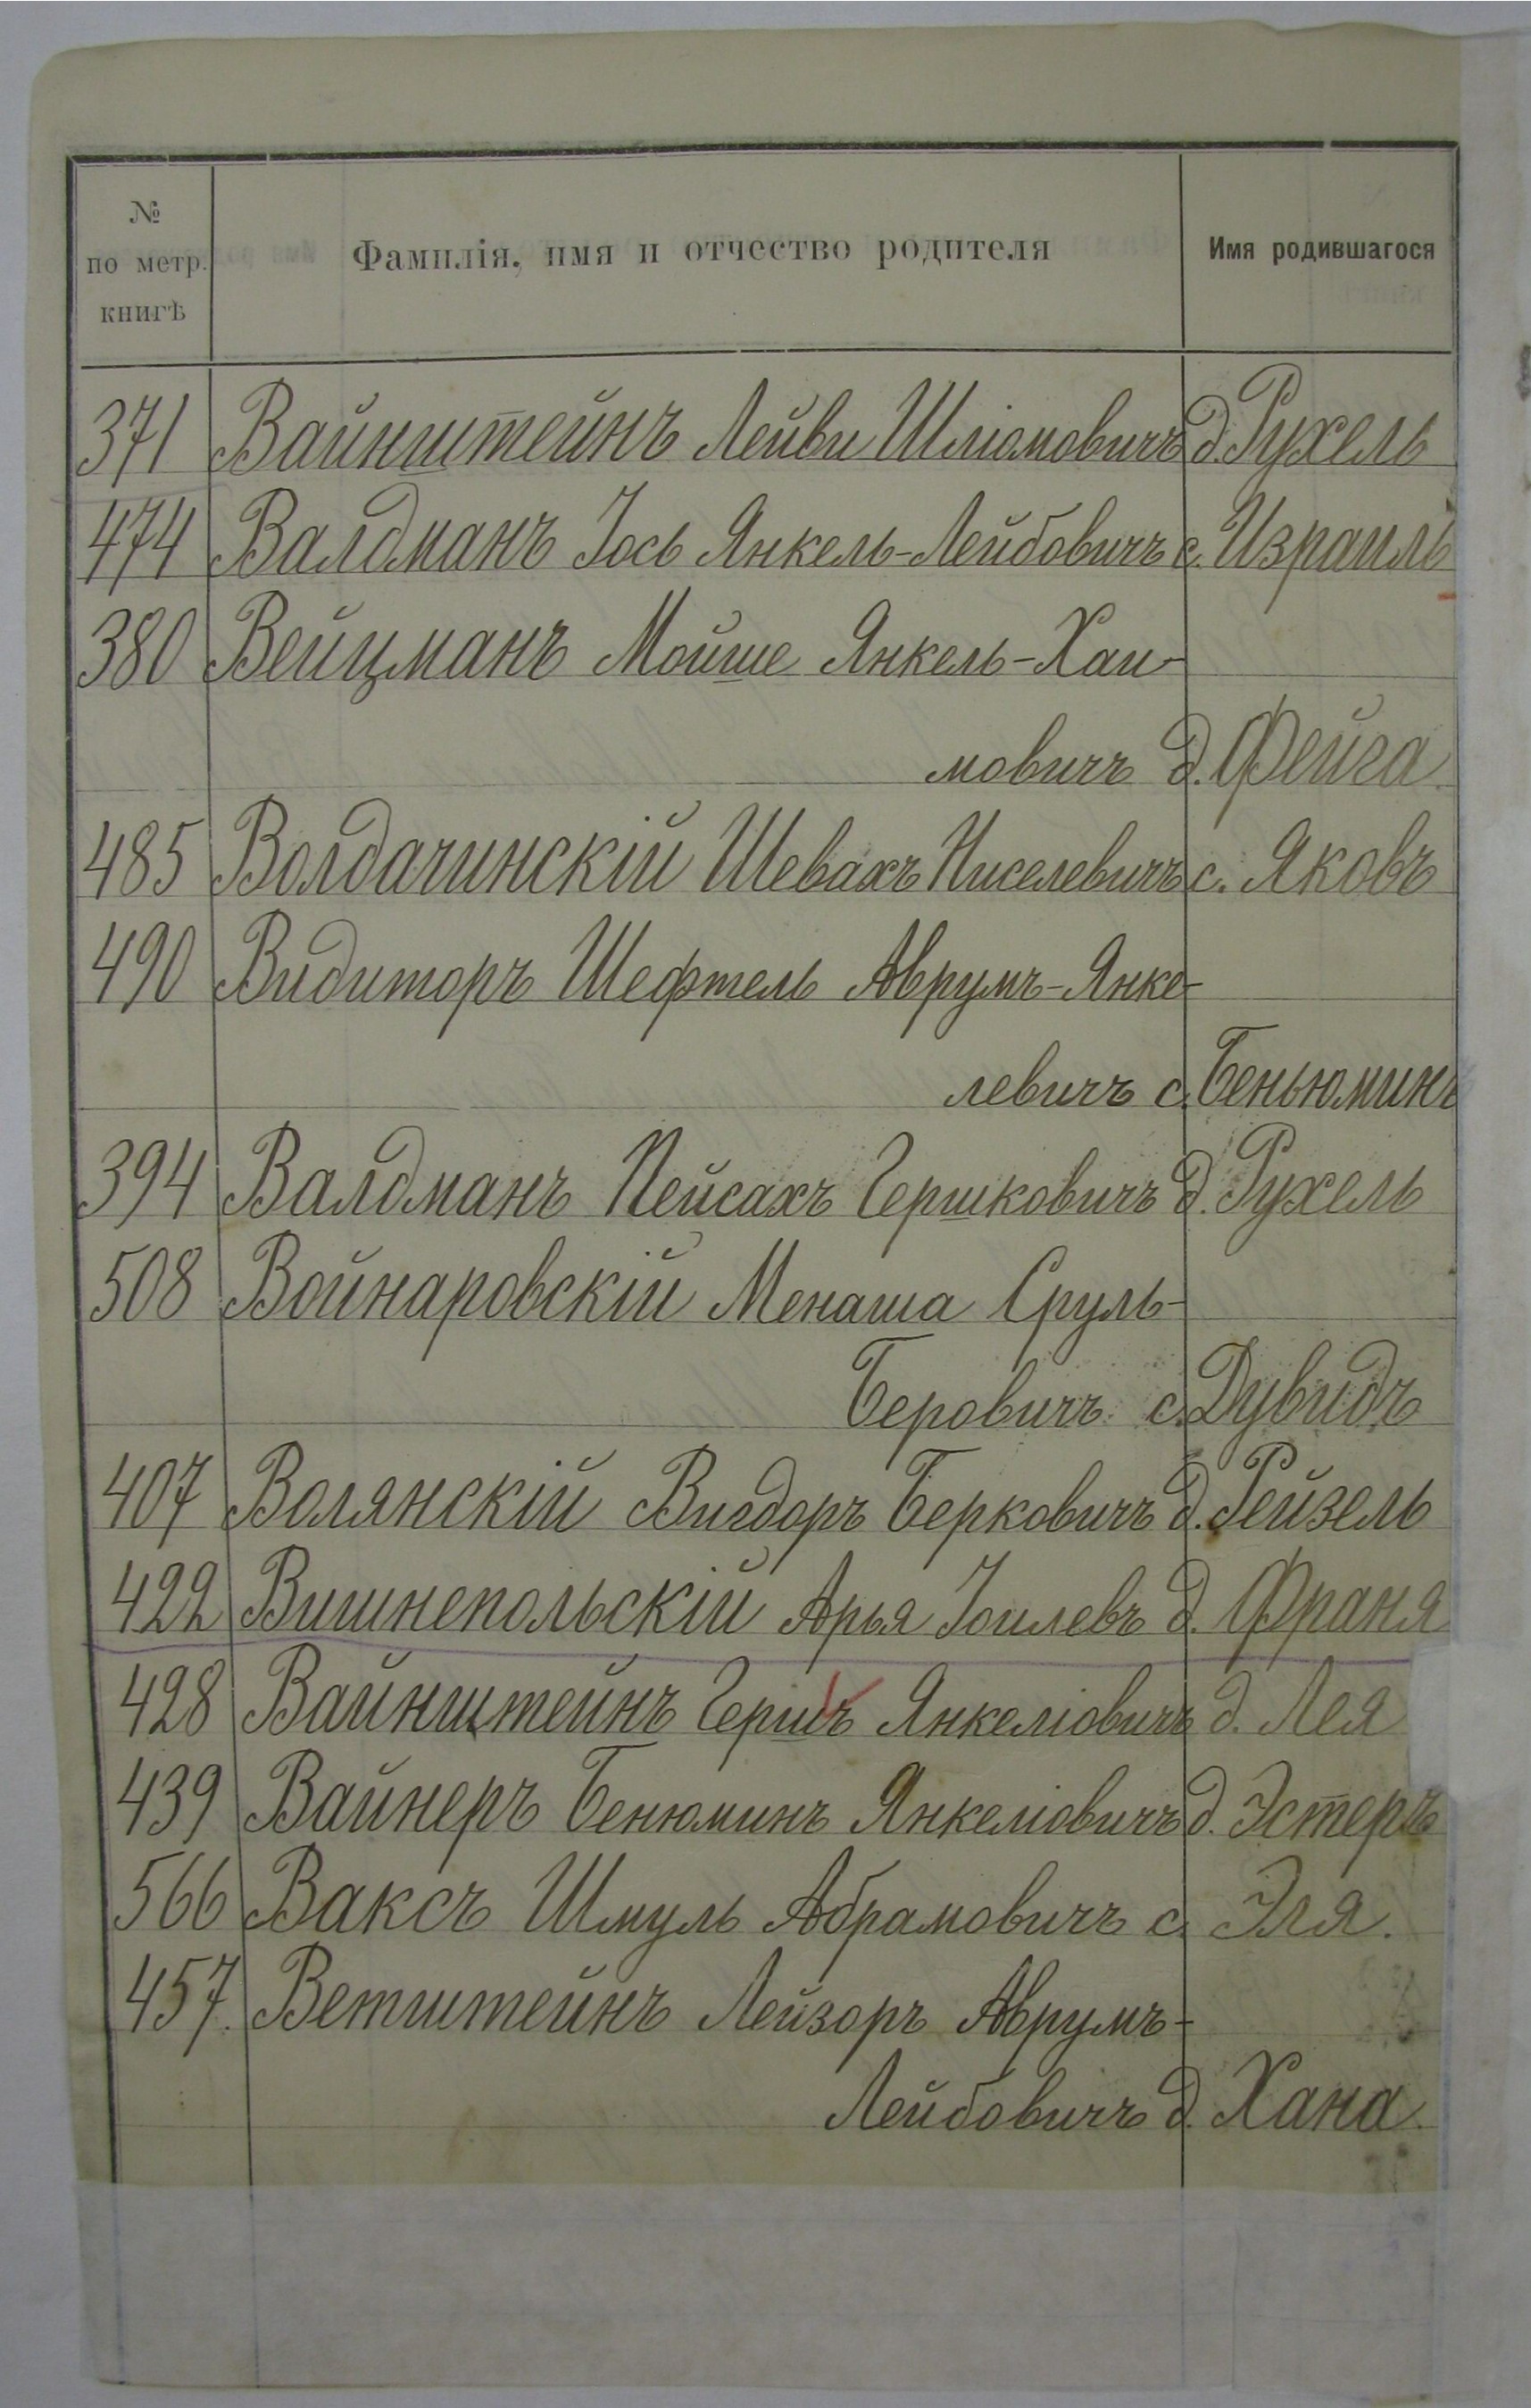 №
по метр.
книгѣ
Фамилія, имя и отчество родителя
Имя родившагося
371 Вайнштейнъ Лейви Шліомовичъ д. Рухель
474 Валдманъ Іось Янкель-Лейбовичъ с. Израиль
380 Вейцманъ Мойше Янкель-Хаи-
мовичъ д. Фейга
485 Волдачинскій Шевахъ Ниселевичъ с. Яковъ
490 Видиторъ Шефтель Аврумъ-Янке-
левичъ с. Беньюминъ
394 Валдманъ Пейсахъ Гершковичъ д. Рухель
508 Войнаровскій Менаша Сруль-
Беровичъ с. Дувидъ
407 Волянскій Вигдоръ Берковичъ д. Рейзель
422 Вишнепольскій Арья Іоилевъ д. Франя
428 Вайнштейнъ Гершъ Янкеліовичъ д. Лея
439 Вайнеръ Бенюминъ Янкеліовичъ д. Эстеръ
566 Ваксъ Шмуль Абрамовичъ с. Эля.
457. Ветштейнъ Лейзоръ Аврумъ-
Лейбовичъ д. Хана